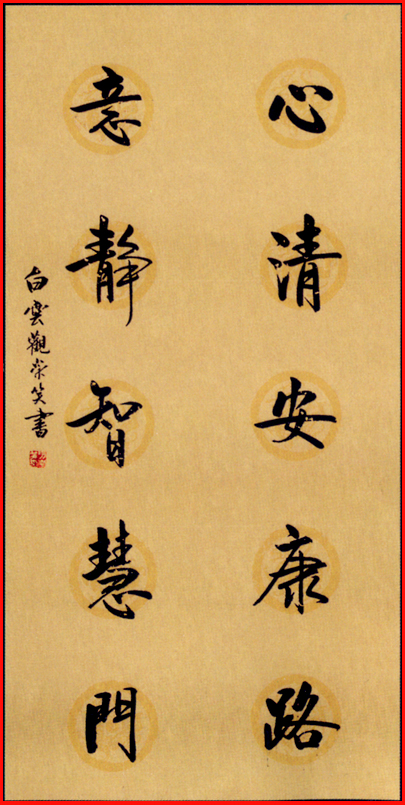 心清安康路
意靜智慧門
白雲觀崇笑書